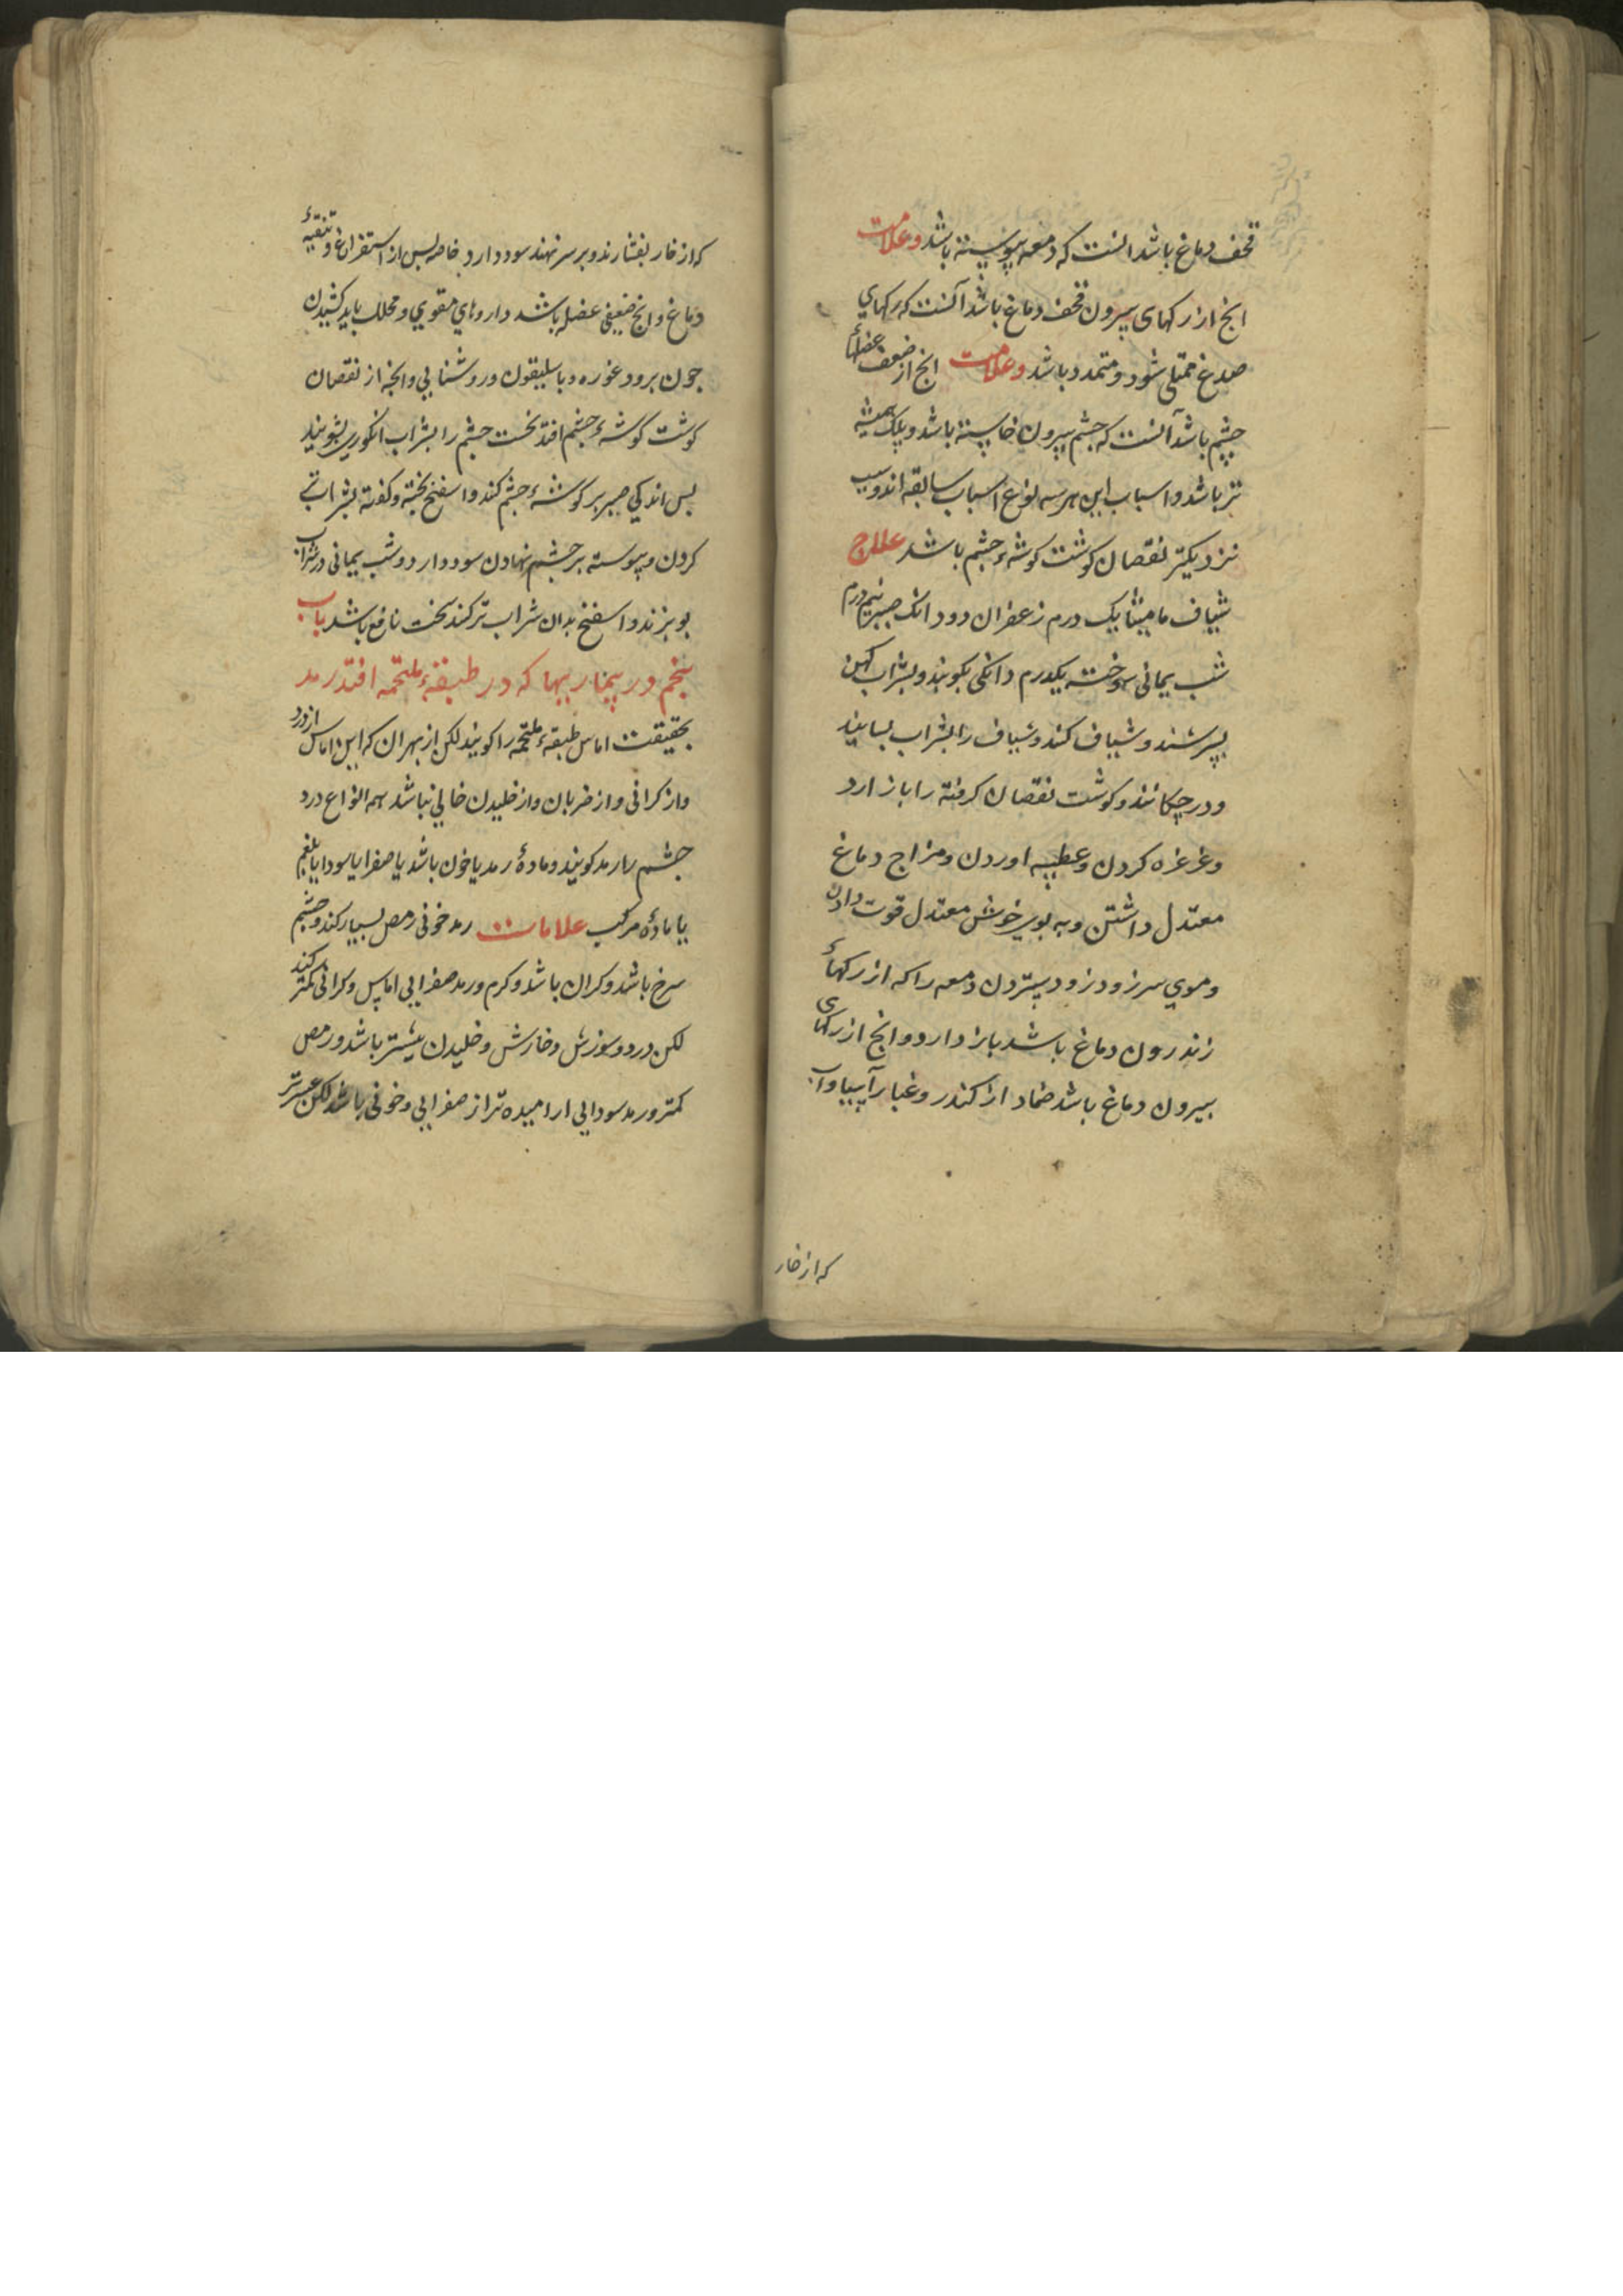 قحف دماغ باشد انست که دمعه پیوسته باشد وعلامت
انج از رکهای بیرون قحف دماغ باشد آنست که رکهای
صدغ ممتلی شود و متمدد باشد وعلامت انج از ضعف عضلهاء
چشم باشد آنست که چشم بیرون خاسته باشد و پلک همیشه
تر باشد و اسباب این هر سه نوع اسباب سابقه اند و سبب
نزدیکتر نقصان کوشت کوشهٔ چشم باشد علاج
شیاف مامیثا یک درم زعفران دو دانک صبر نیم درم
شب یمانی سوخته یکدرم دانکی بکوبند و بشراب کهن
بسرشند و شیاف کنند و شیاف را بشراب بسایند
و در چکانند و کوشت نقصان کرفته را باز ارد
و غرغره کردن و عطسه اوردن و مزاج دماغ
معتدل داشتن و به بوی خوش معتدل قوت دادن
و موی سر زود زود ستردن دمعه را که از رکهاء
زندرون دماغ باشد باز دارد و انج از رکهای
بیرون دماغ باشد ضماد از کندر و غبار آسیا و اب
که از خار
که از خار بفشارند و بر سر نهند سود دارد خاصه بس از استفراغ و تنقیهٔ
دماغ و انج ضعیفی عضله باشد داروهای مقوی و محلل باید کشیدن
جون برود غوره و باسلیقون و روشنایی و انجه از نقصان
کوشت کوشهٔ چشم افتد نخست چشم را بشراب انکوری بشویند
بس اندکی صبر بر کوشهٔ چشم کنند و اسفنج بخته و کفته بشراب تر
کردن و پیوسته بر چشم نهادن سود دارد و شب یمانی در شراب
بوبزند و اسفنج بدان شراب تر کنند سخت نافع باشد باب
پنجم در بیماریها که در طبقهٔ ملتحمه افتد رمد
بحقیقت اماس طبقهٔ ملتحمه را کویند لکن از بهر ان که این اماس از درد
و از کرانی و از ضربان و از خلیدن خالی نباشد همه انواع درد
چشم را رمد کویند و مادهٔ رمد یا خون باشد یا صفرا یا سودا یا بلغم
یا مادهٔ مرکب علامات رمد خونی رمص بسیار کند و چشم
سرخ باشد و کران باشد و کرم و رمد صفرایی اماس و کرانی کمتر کند
لکن درد و سوزش و خارش و خلیدن بیشتر باشد و رمص
کمتر و رمد سودایی ارامیده تر از صفرایی و خونی باشد لکن عسرتر